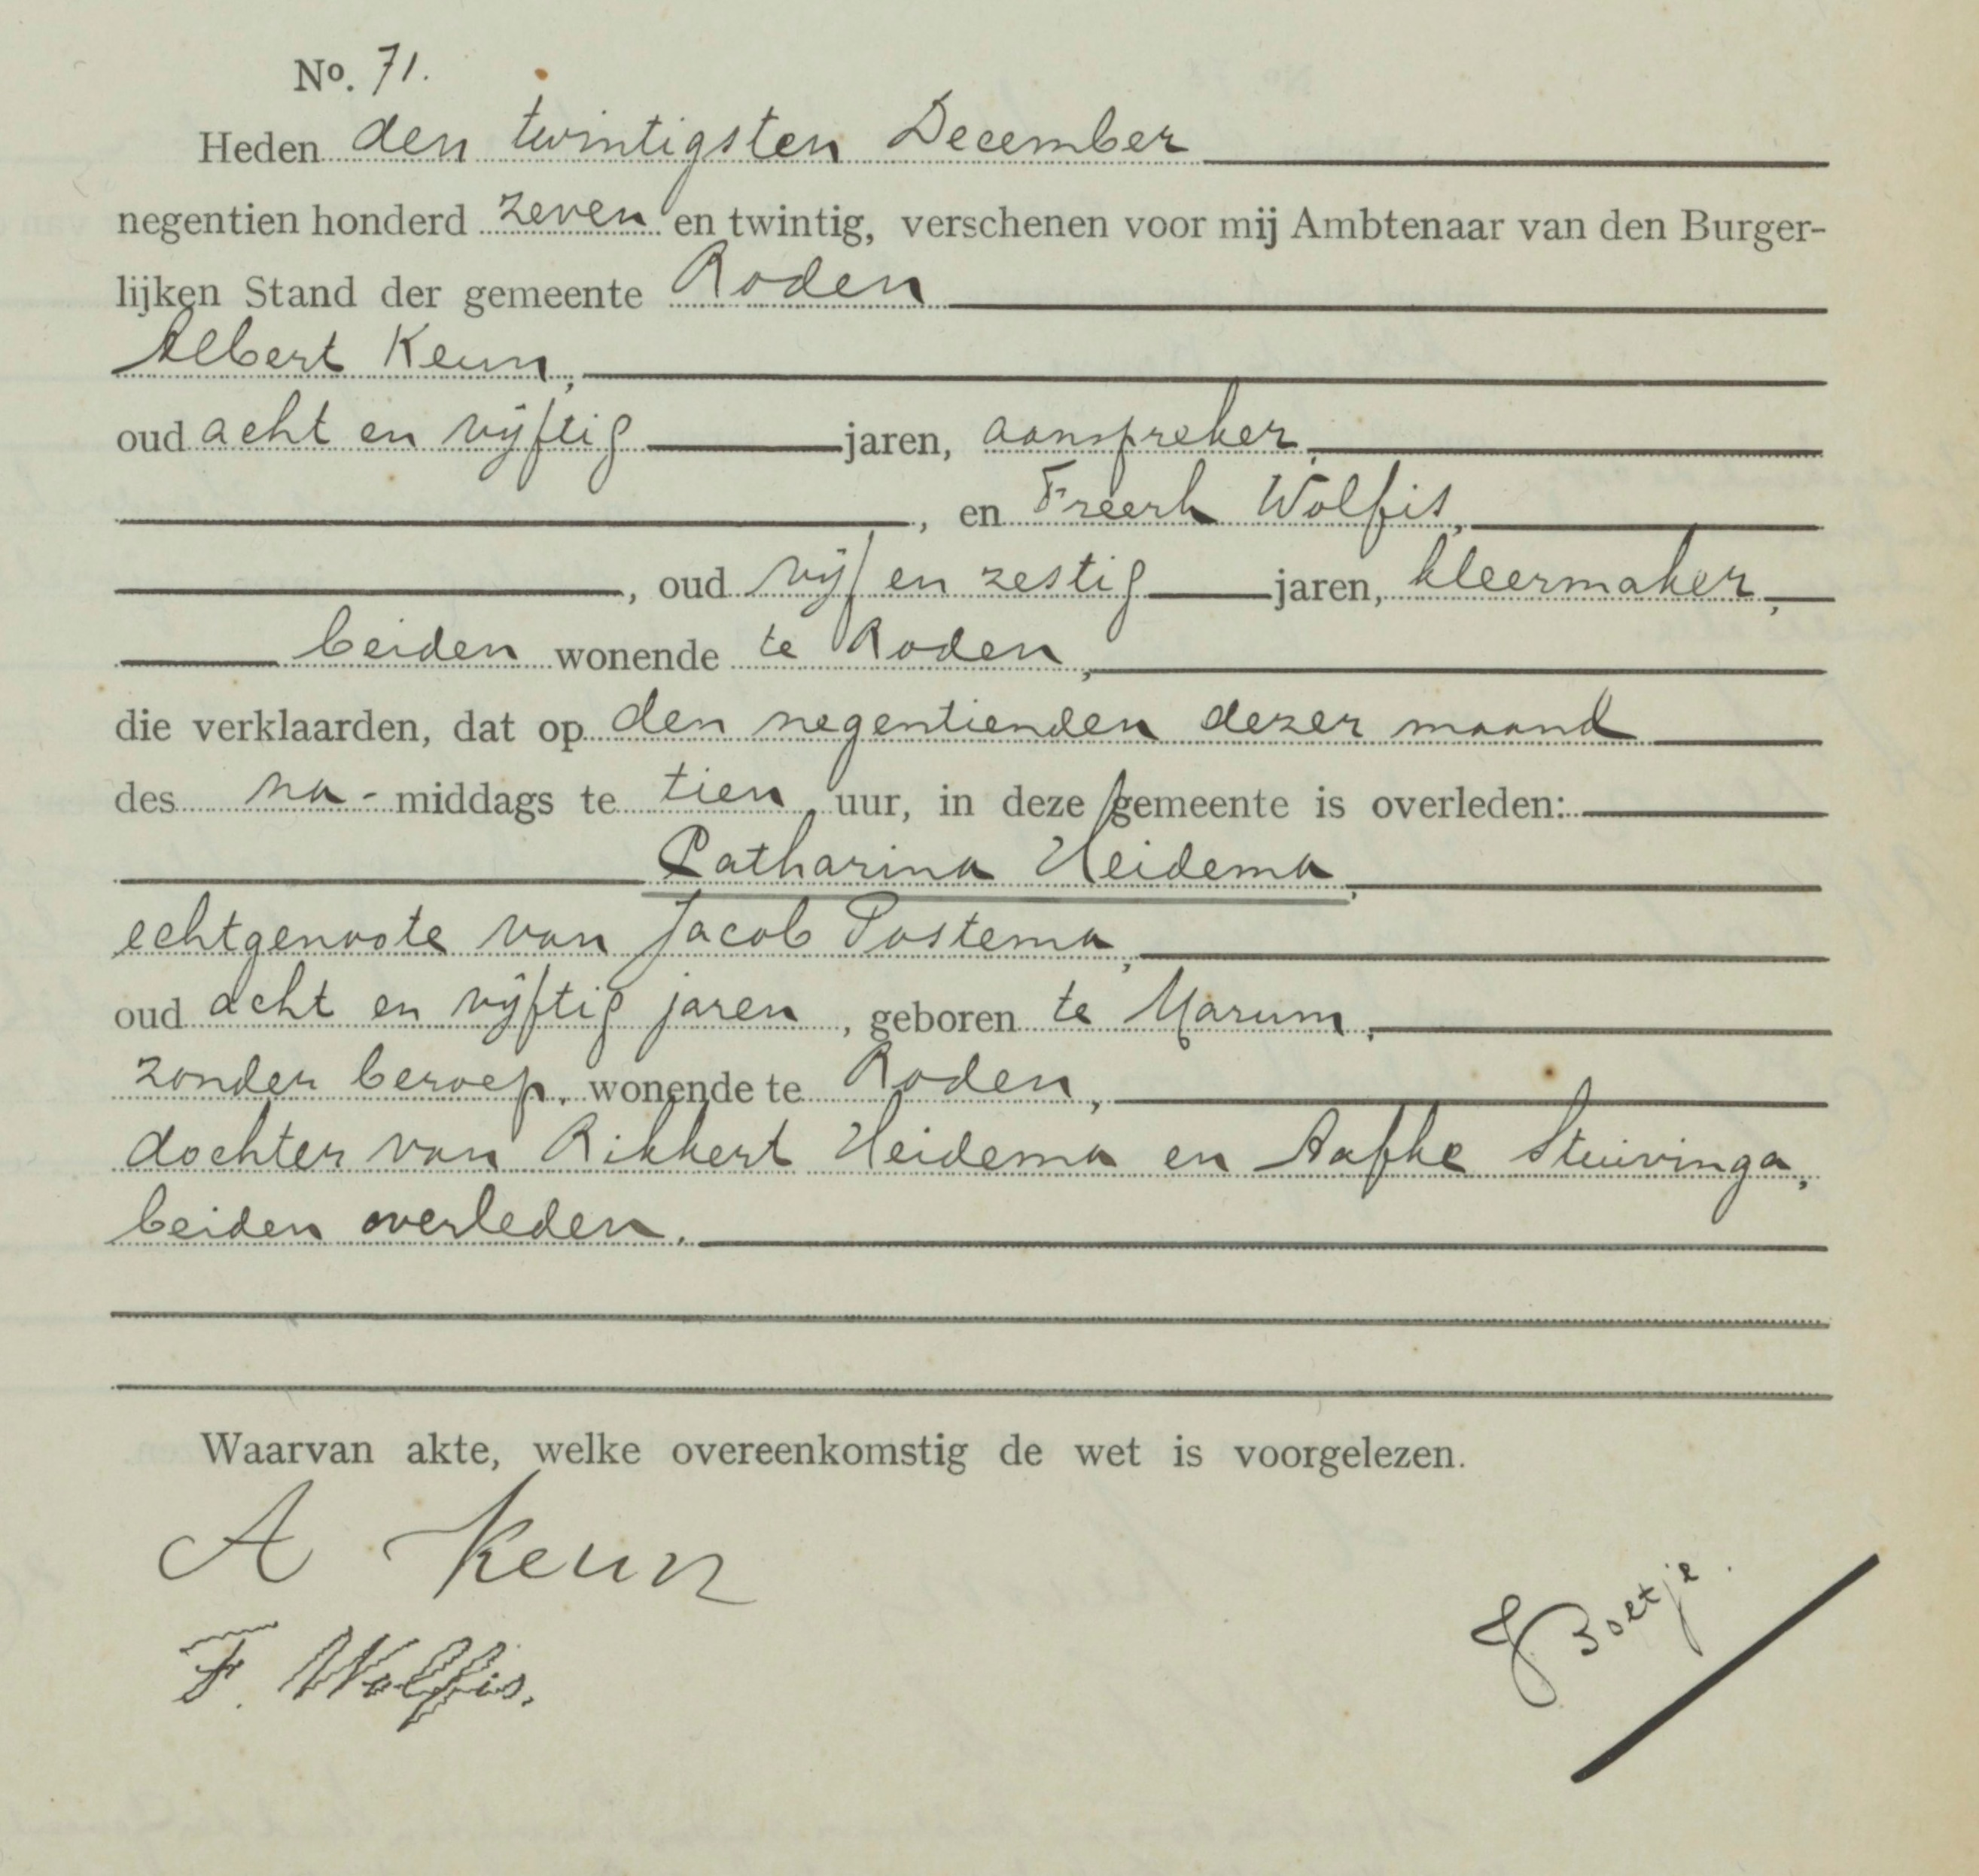 No. 71.
Heden den twintigsten December
negentien honderd zeven en twintig, verschenen voor mij Ambtenaar van den Burger-
lijken Stand der gemeente Roden
Albert Keun,
oud acht en vijftig jaren, aanspreker,
, en Freerk Wolfis,
, oud vijf en zestig jaren, kleermaker,
beiden wonende te Roden,
die verklaarden, dat op den negentienden dezer maand
des na-middags te tien uur, in deze gemeente is overleden:
Catharina Heidema,
echtgenoote van Jacob Postema,
oud acht en vijftig jaren, geboren te Marum,
zonder beroep, wonende te Roden,
dochter van Rikkert Heidema en Aafke Stuivinga,
beiden overleden.
Waarvan akte, welke overeenkomstig de wet is voorgelezen.
A Keun
F. Wolfis.
J Boetje.